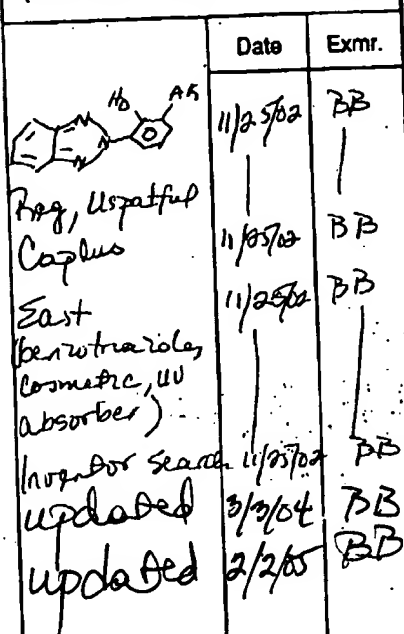 Date Exmr.
HO AR
N N N 11/25/02 BB
Reg, Uspatful
Caplus 11/25/02 BB
East 11/25/02 BB
(benzotriazole,
cosmetic, UV
absorber)
Inventor Search 11/25/02 BB
updated 3/3/04 BB
updated 2/2/05 BB